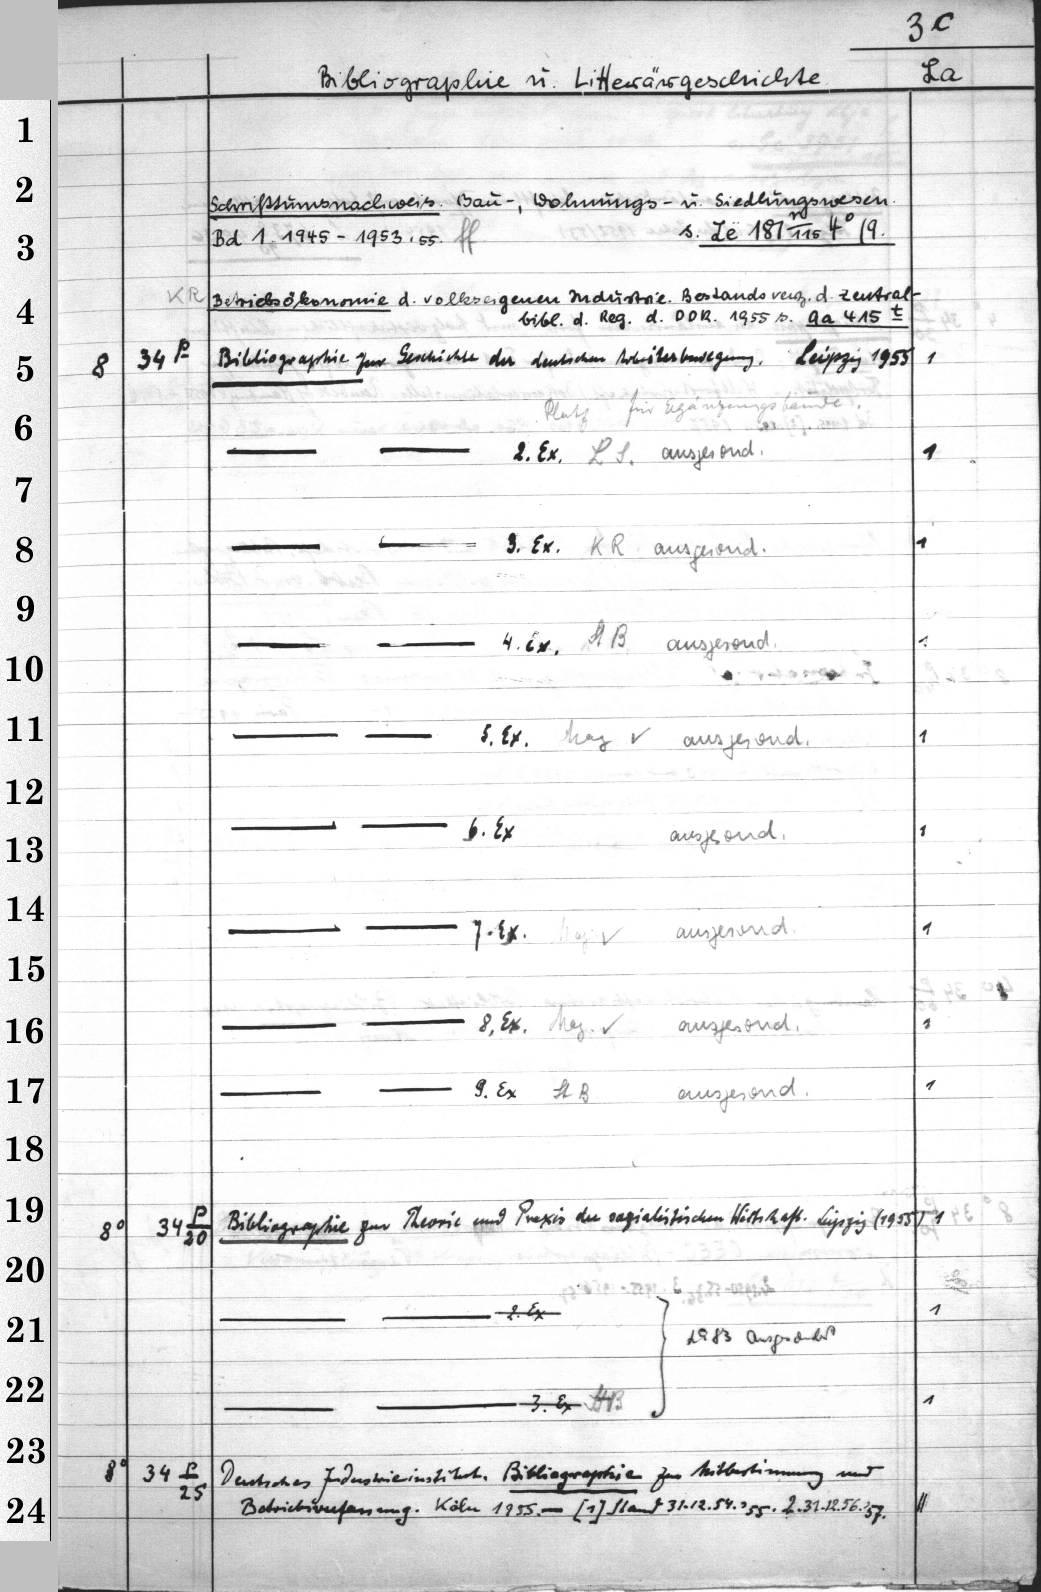 3c
Bibliographie u. Litterärgeschichte La
1
2 Schrifttumsnachweis. Bau-, Wohnungs- u. Siedlungswesen.
3 Bd 1. 1945-1953. 55. ff s. Ze 187 n/115 4° (9.
4 KR Betriebsökonomie d. volkseigenen Industrie. Bestandsverz. d. Zentral-
bibl. d. Reg. d. DDR. 1955 s. Qa 415 t
5 8 34 P Bibliographie zur Geschichte der deutschen Arbeiterbewegung. Leipzig 1955 1
6 Platz für Ergänzungsbände.
2. Ex. LS. ausgesond. 1
7
8 3. Ex. KR ausgesond. 1
9
4. Ex. StB ausgesond. 1
10
11 5. Ex. Mag ✓ ausgesond. 1
12
13 6. Ex ausgesond. 1
14 7. Ex. Mag ✓ ausgesond. 1
15
16 8. Ex. Mag. ✓ ausgesond. 1
17 9. Ex StB ausgesond. 1
18
19 8° 34 P/20 Bibliographie zur Theorie und Praxis der sozialistischen Wirtschaft. Leipzig (1955) 1
20
21 2. Ex 83 ausgesondert 1
22 3. Ex StB 1
23 8° 34 P/25 Deutsches Industrieinstitut. Bibliographie zur Mitbestimmung und
24 Betriebsverfassung. Köln 1955.— [1] Stand 31.12.54. '55. 2. 31.12.56. '57. II